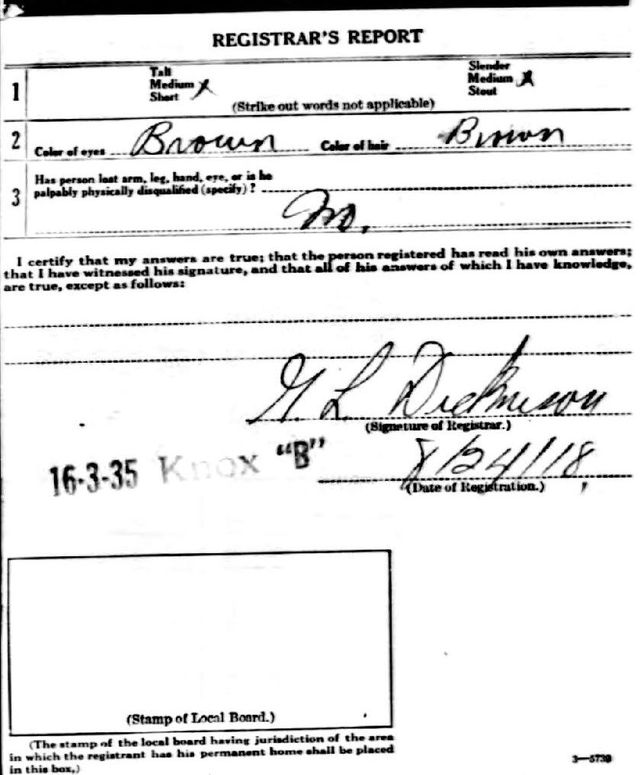 REGISTRAR'S REPORT
1
Tall
Medium x
Short
Slender
Medium x
Stout
(Strike out words not applicable)
2 Color of eyes Brown Color of hair Brown
3 Has person lost arm, leg, hand, eye, or is he
palpably physically disqualified (specify)?
No.
I certify that my answers are true; that the person registered has read his own answers;
that I have witnessed his signature, and that all of his answers of which I have knowledge,
are true, except as follows:
G. L. Dickinson
(Signature of Registrar.)
16-3-35 Knox "B" 8/24/18
(Date of Registration.)
(Stamp of Local Board.)
(The stamp of the local board having jurisdiction of the area
in which the registrant has his permanent home shall be placed
in this box.)
3—5739